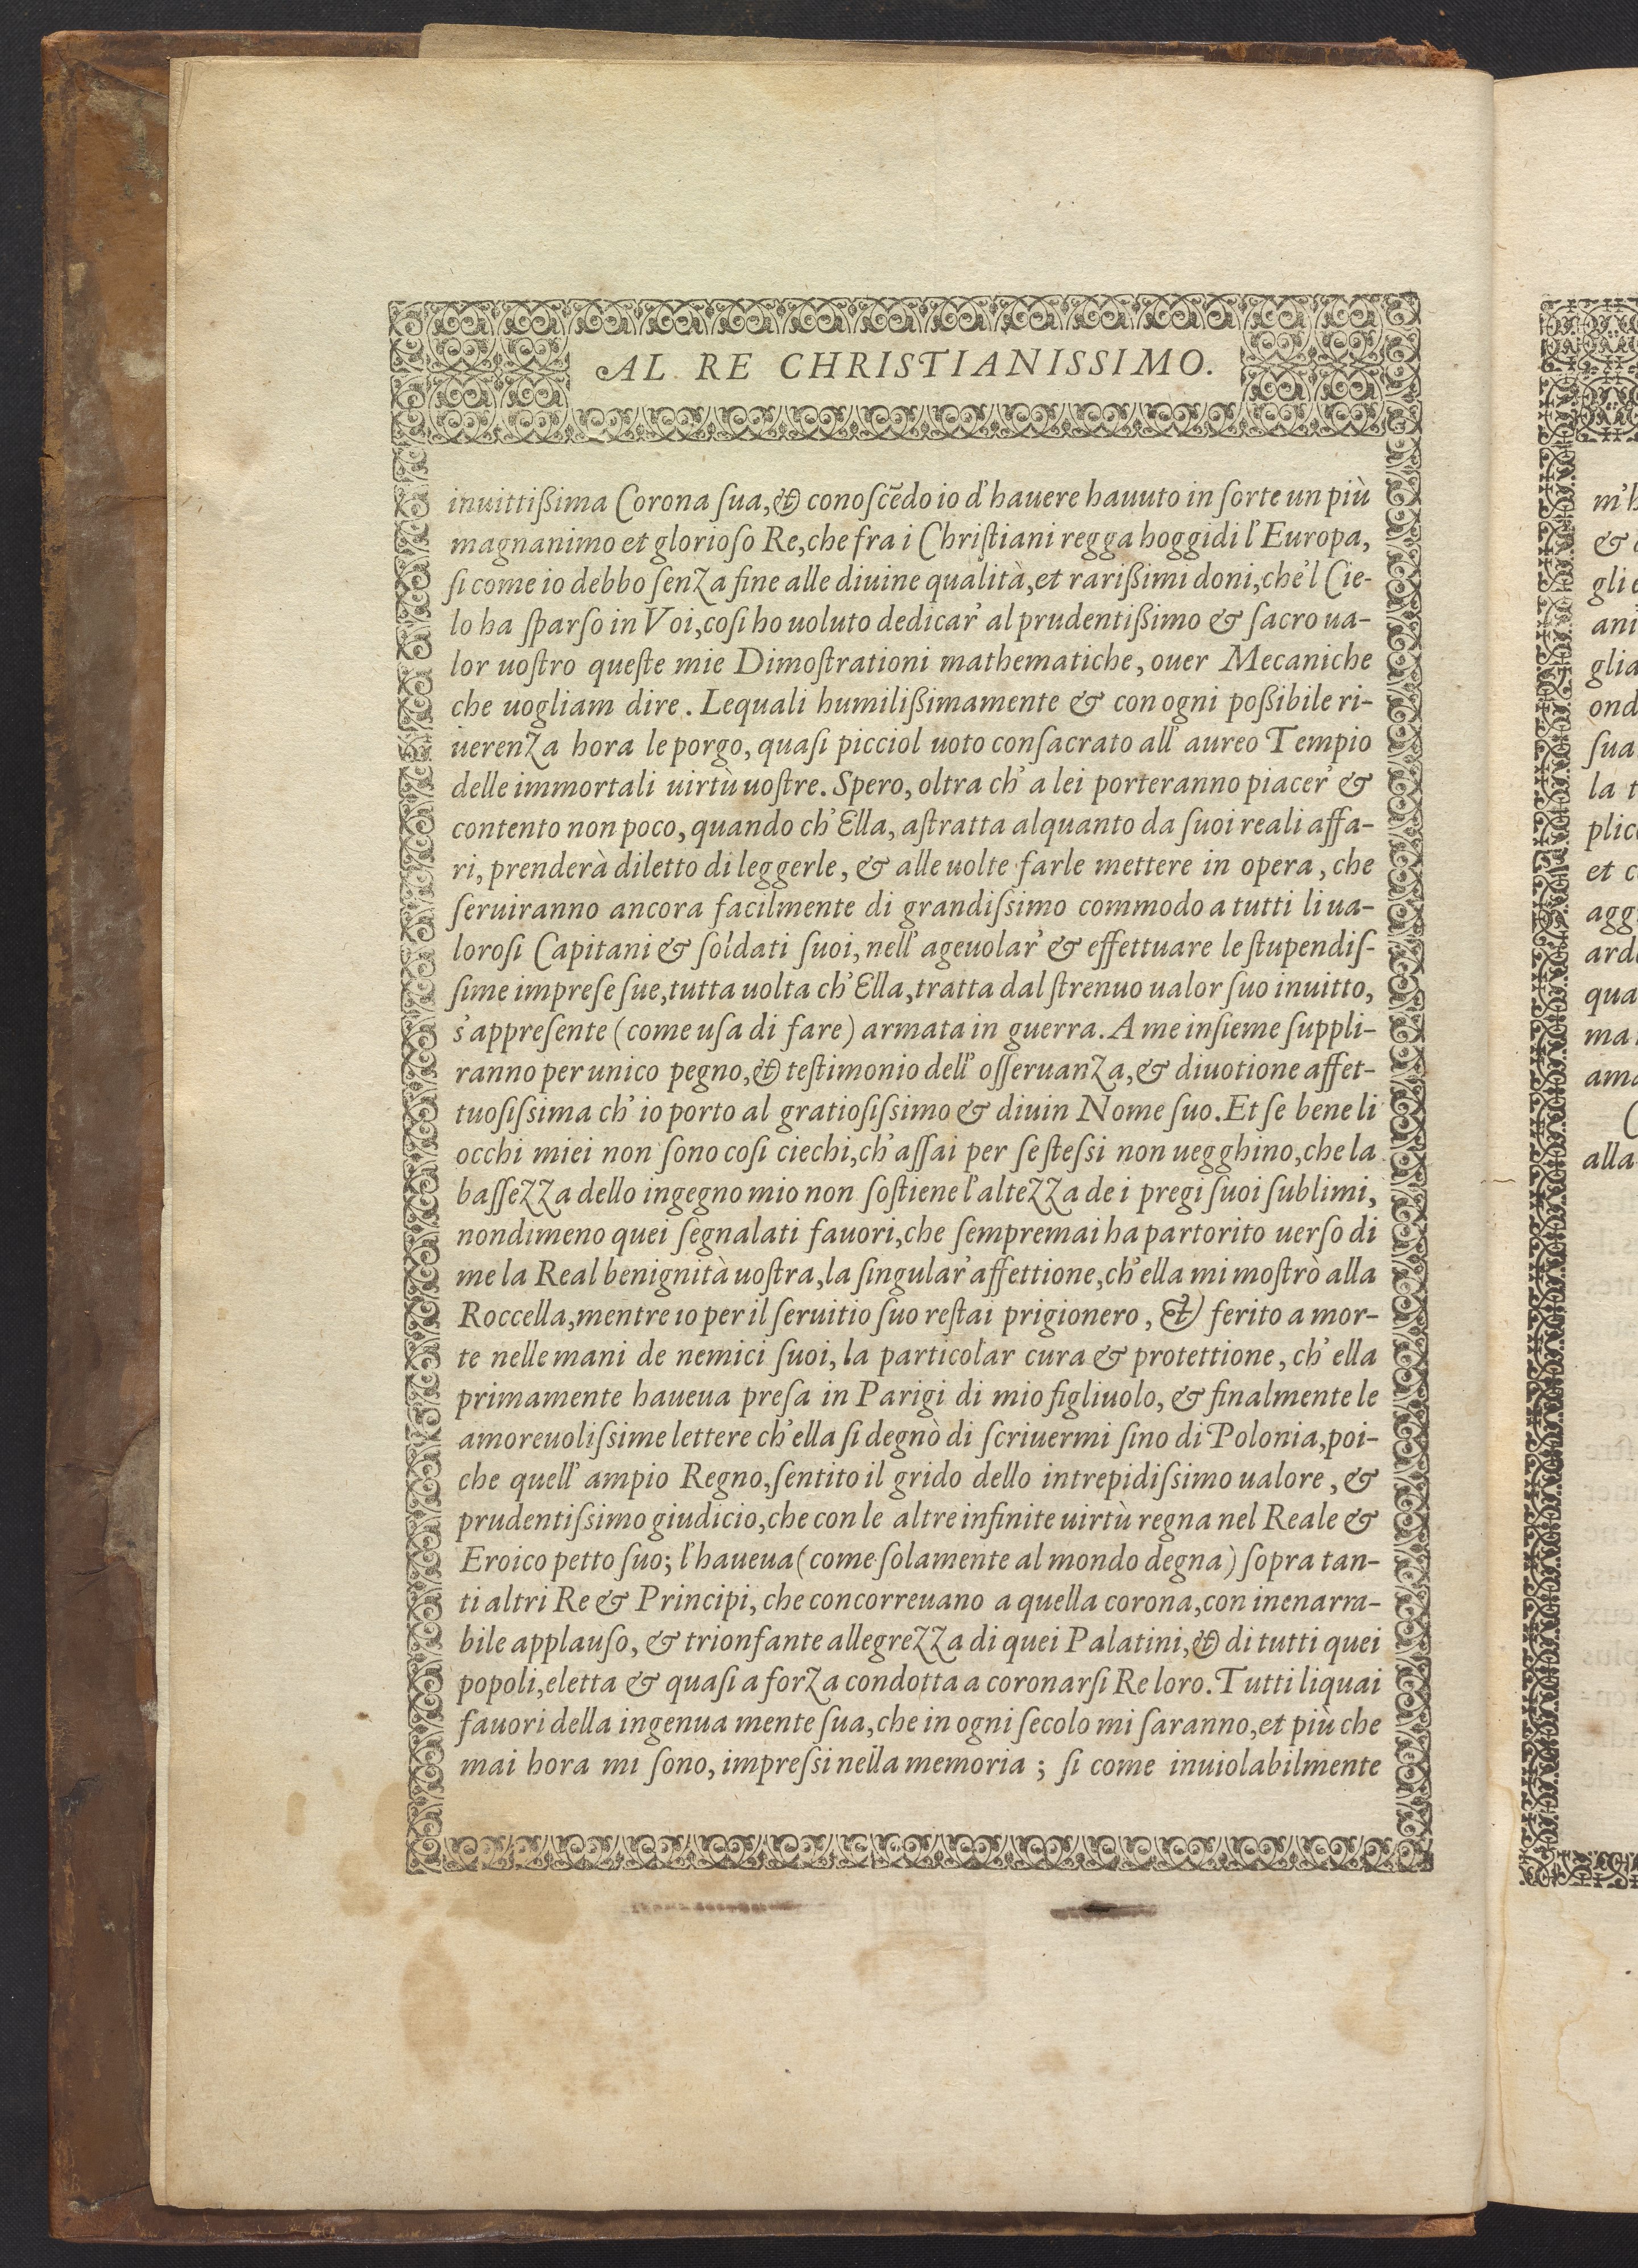 AL RE CHRISTIANISSIMO.
inuittißima Corona ſua, & conoſcēdo io d'hauere hauuto in ſorte un più
magnanimo et glorioſo Re, che fra i Chriſtiani regga hoggidi l'Europa,
ſi come io debbo ſenza fine alle diuine qualità, et rarißimi doni, che'l Cie-
lo ha ſparſo in Voi, coſi ho uoluto dedicar' al prudentißimo & ſacro ua-
lor uoſtro queſte mie Dimoſtrationi mathematiche, ouer Mecaniche
che uogliam dire. Lequali humilißimamente & con ogni poßibile ri-
uerenza hora le porgo, quaſi picciol uoto conſacrato all' aureo Tempio
delle immortali uirtù uoſtre. Spero, oltra ch' a lei porteranno piacer' &
contento non poco, quando ch' Ella, aſtratta alquanto da ſuoi reali affa-
ri, prenderà diletto di leggerle, & alle uolte farle mettere in opera, che
ſeruiranno ancora facilmente di grandiſsimo commodo a tutti li ua-
loroſi Capitani & ſoldati ſuoi, nell' ageuolar' & effettuare le ſtupendiſ-
ſime impreſe ſue, tutta uolta ch' Ella, tratta dal ſtrenuo ualor ſuo inuitto,
s'appreſente (come uſa di fare) armata in guerra. A me inſieme ſuppli-
ranno per unico pegno, & teſtimonio dell' oſſeruanza, & diuotione affet-
tuoſiſsima ch' io porto al gratioſiſsimo & diuin Nome ſuo. Et ſe bene li
occhi miei non ſono coſi ciechi, ch' aſſai per ſe ſteſsi non uegghino, che la
baſſezza dello ingegno mio non ſoſtiene l'altezza de i pregi ſuoi ſublimi,
nondimeno quei ſegnalati fauori, che ſempremai ha partorito uerſo di
me la Real benignità uoſtra, la ſingular' affettione, ch' ella mi moſtrò alla
Roccella, mentre io per il ſeruitio ſuo reſtai prigionero, & ferito a mor-
te nelle mani de nemici ſuoi, la particolar cura & protettione, ch' ella
primamente haueua preſa in Parigi di mio figliuolo, & finalmente le
amoreuoliſsime lettere ch' ella ſi degnò di ſcriuermi ſino di Polonia, poi-
che quell' ampio Regno, ſentito il grido dello intrepidiſsimo ualore, &
prudentiſsimo giudicio, che con le altre infinite uirtù regna nel Reale &
Eroico petto ſuo; l'haueua (come ſolamente al mondo degna) ſopra tan-
ti altri Re & Principi, che concorreuano a quella corona, con inenarra-
bile applauſo, & trionfante allegrezza di quei Palatini, & di tutti quei
popoli, eletta & quaſi a forza condotta a coronarſi Re loro. Tutti liquai
fauori della ingenua mente ſua, che in ogni ſecolo mi ſaranno, et più che
mai hora mi ſono, impreſsi nella memoria ; ſi come inuiolabilmente
m'h
&
gli e
ani
glia
ond
ſua
la t
plic
et c
agg
ard
qua
ma
ama
alla